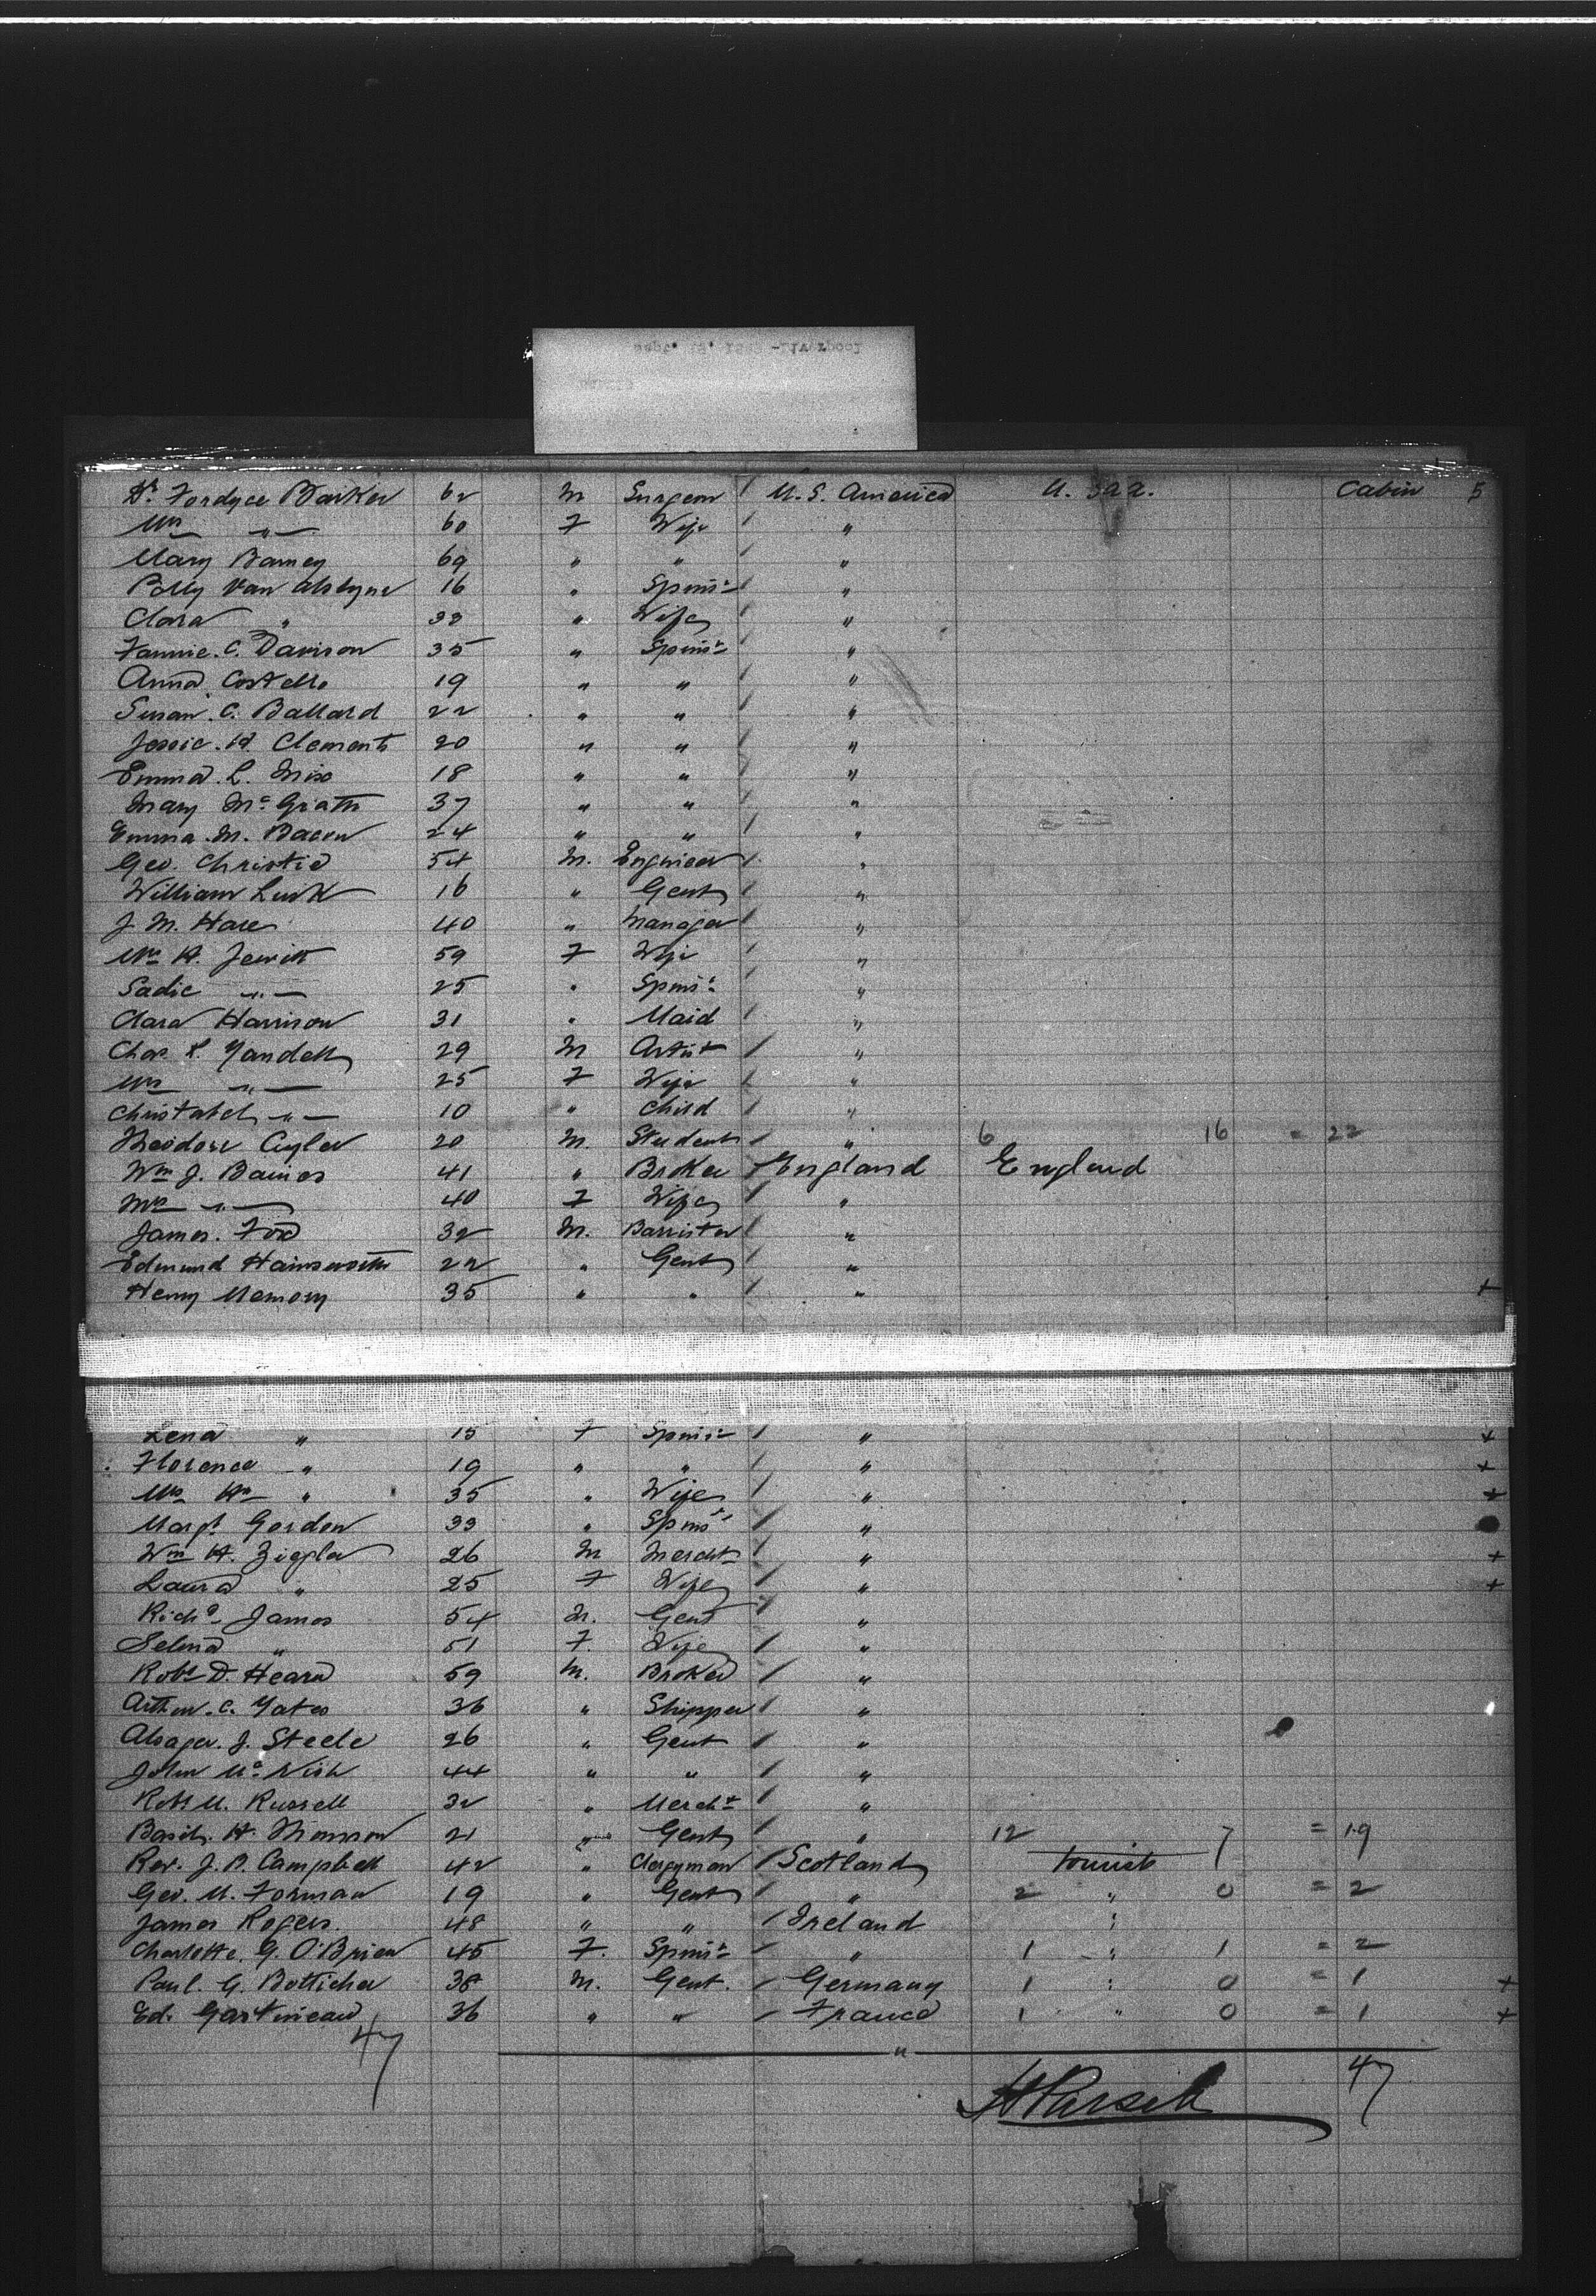 Dr. Fordyce Barker 62 M Surgeon / U.S. America U.S.A. Cabin 5
Mrs " 60 F Wife / "
Mary Barney 69 " " / "
Polly Van Alstyne 16 " Spinsr / "
Clara " 33 " Wife / "
Fannie. C. Davison 35 " Spinsr / "
Anna Costello 19 " " / "
Susan. C. Ballard 22 " " / "
Jessie. H. Clements 20 " " / "
Emma. L. Nix 18 " " / "
Mary Mc Grath 37 " " / "
Emma. M. Bacon 24 " " / "
Geo. Christie 54 M. Engineer / "
William Lusk 16 " Gent / "
J. M. Hare 40 " Manager / "
Mrs H. Jewitt 59 F Wife / "
Sadie " 25 " Spinsr / "
Clara Harrison 31 " Maid / "
Chas. L. Yandell 29 M Artist / "
Mrs " 25 F Wife / "
Christabel " 10 " Child / "
Theodore Cuyler 20 M. Student / " 6 16 = 22
Wm J. Baines 41 " Broker / England England
Mrs " 40 F Wife / "
James. Ford 32 M. Barrister / "
Edmund Hainsworth 22 " Gent / "
Henry Memory 35 " " / " +
Lena " 15 F Spinsr / " +
Florence " 19 " " / " +
Mrs Hn " 35 " Wife / " +
Margt Gordon 33 " Spinsr / "
Wm H. Ziegler 26 M Mercht / " +
Laura " 25 F Wife / " +
Richd James 54 M. Gent / "
Selena " 51 F. Wife / "
Robt D. Heard 59 M. Broker / "
Arthur. C. Yates 36 " Shipper / "
Alsager. J. Steele 26 " Gent / "
John Mc Nish 44 " " / "
Robt M. Russell 32 " Mercht / "
Basil. H. Thomson 21 " Gent / " 12 7 = 19
Rev. J. B. Campbell 42 " Clergyman / Scotland tourist
Geo. M. Forman 19 " Gent / " 2 " 0 = 2
James Rogers. 48 " " / Ireland "
Charlotte. G. O'Brien 45 F. Spinsr / " 1 " 1 = 2
Paul. G. Botticher 38 M. Gent. / Germany 1 " 0 = 1 +
Ed. Gastineau 36 " " / France 1 " 0 = 1 +
47 " 47